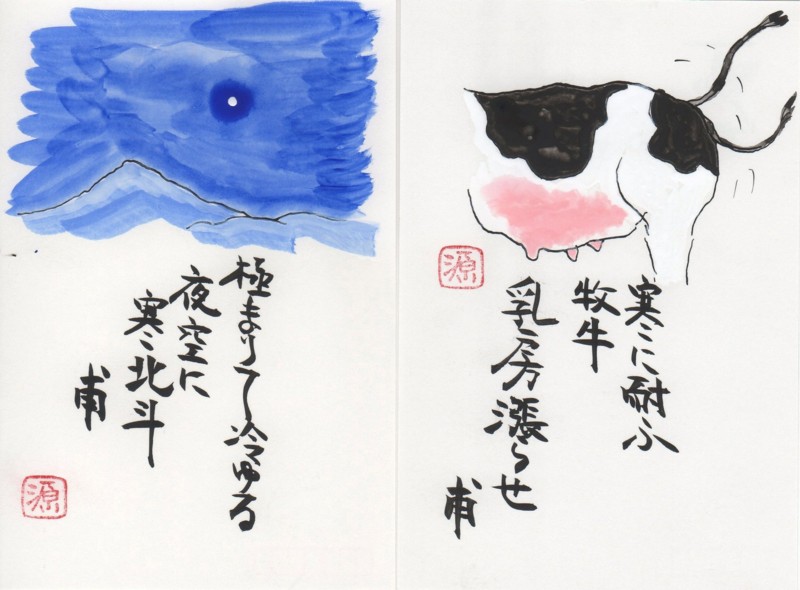 極まりて冷ゆる
夜空に
寒北斗
甫
源
寒に耐ふ
牧牛
乳房漲らせ
甫
源